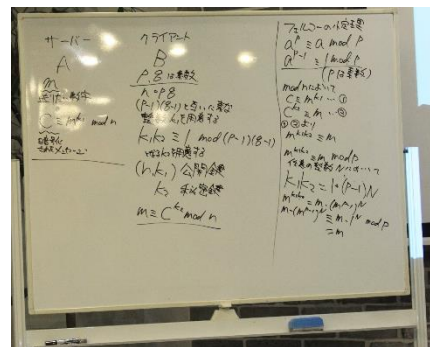 サーバー
A
m
送りたい数字
C ≡ m^k1 mod n
暗号
クライアント
B
p, q は素数
n = pq
(p-1)(q-1)と互いに素な
整数k1を用意する
k1k2 ≡ 1 mod (p-1)(q-1)
k2を用意する
(n, k1) 公開鍵
k2 秘密鍵
m ≡ C^k2 mod n
フェルマーの小定理
a^p ≡ a mod p
a^p-1 ≡ 1 mod p
(pは素数)
mod nにおいて
C ≡ m^k1 … ①
C^k2 ≡ m … ②
①②より
m^k1k2 ≡ m
m^k1k2 ≡ m mod p
任意の整数Nにおいて
k1k2 = 1+(p-1)N
m^k1k2 = m・(m^p-1)^N
m・(m^p-1)^N ≡ m・1^N mod p
= m